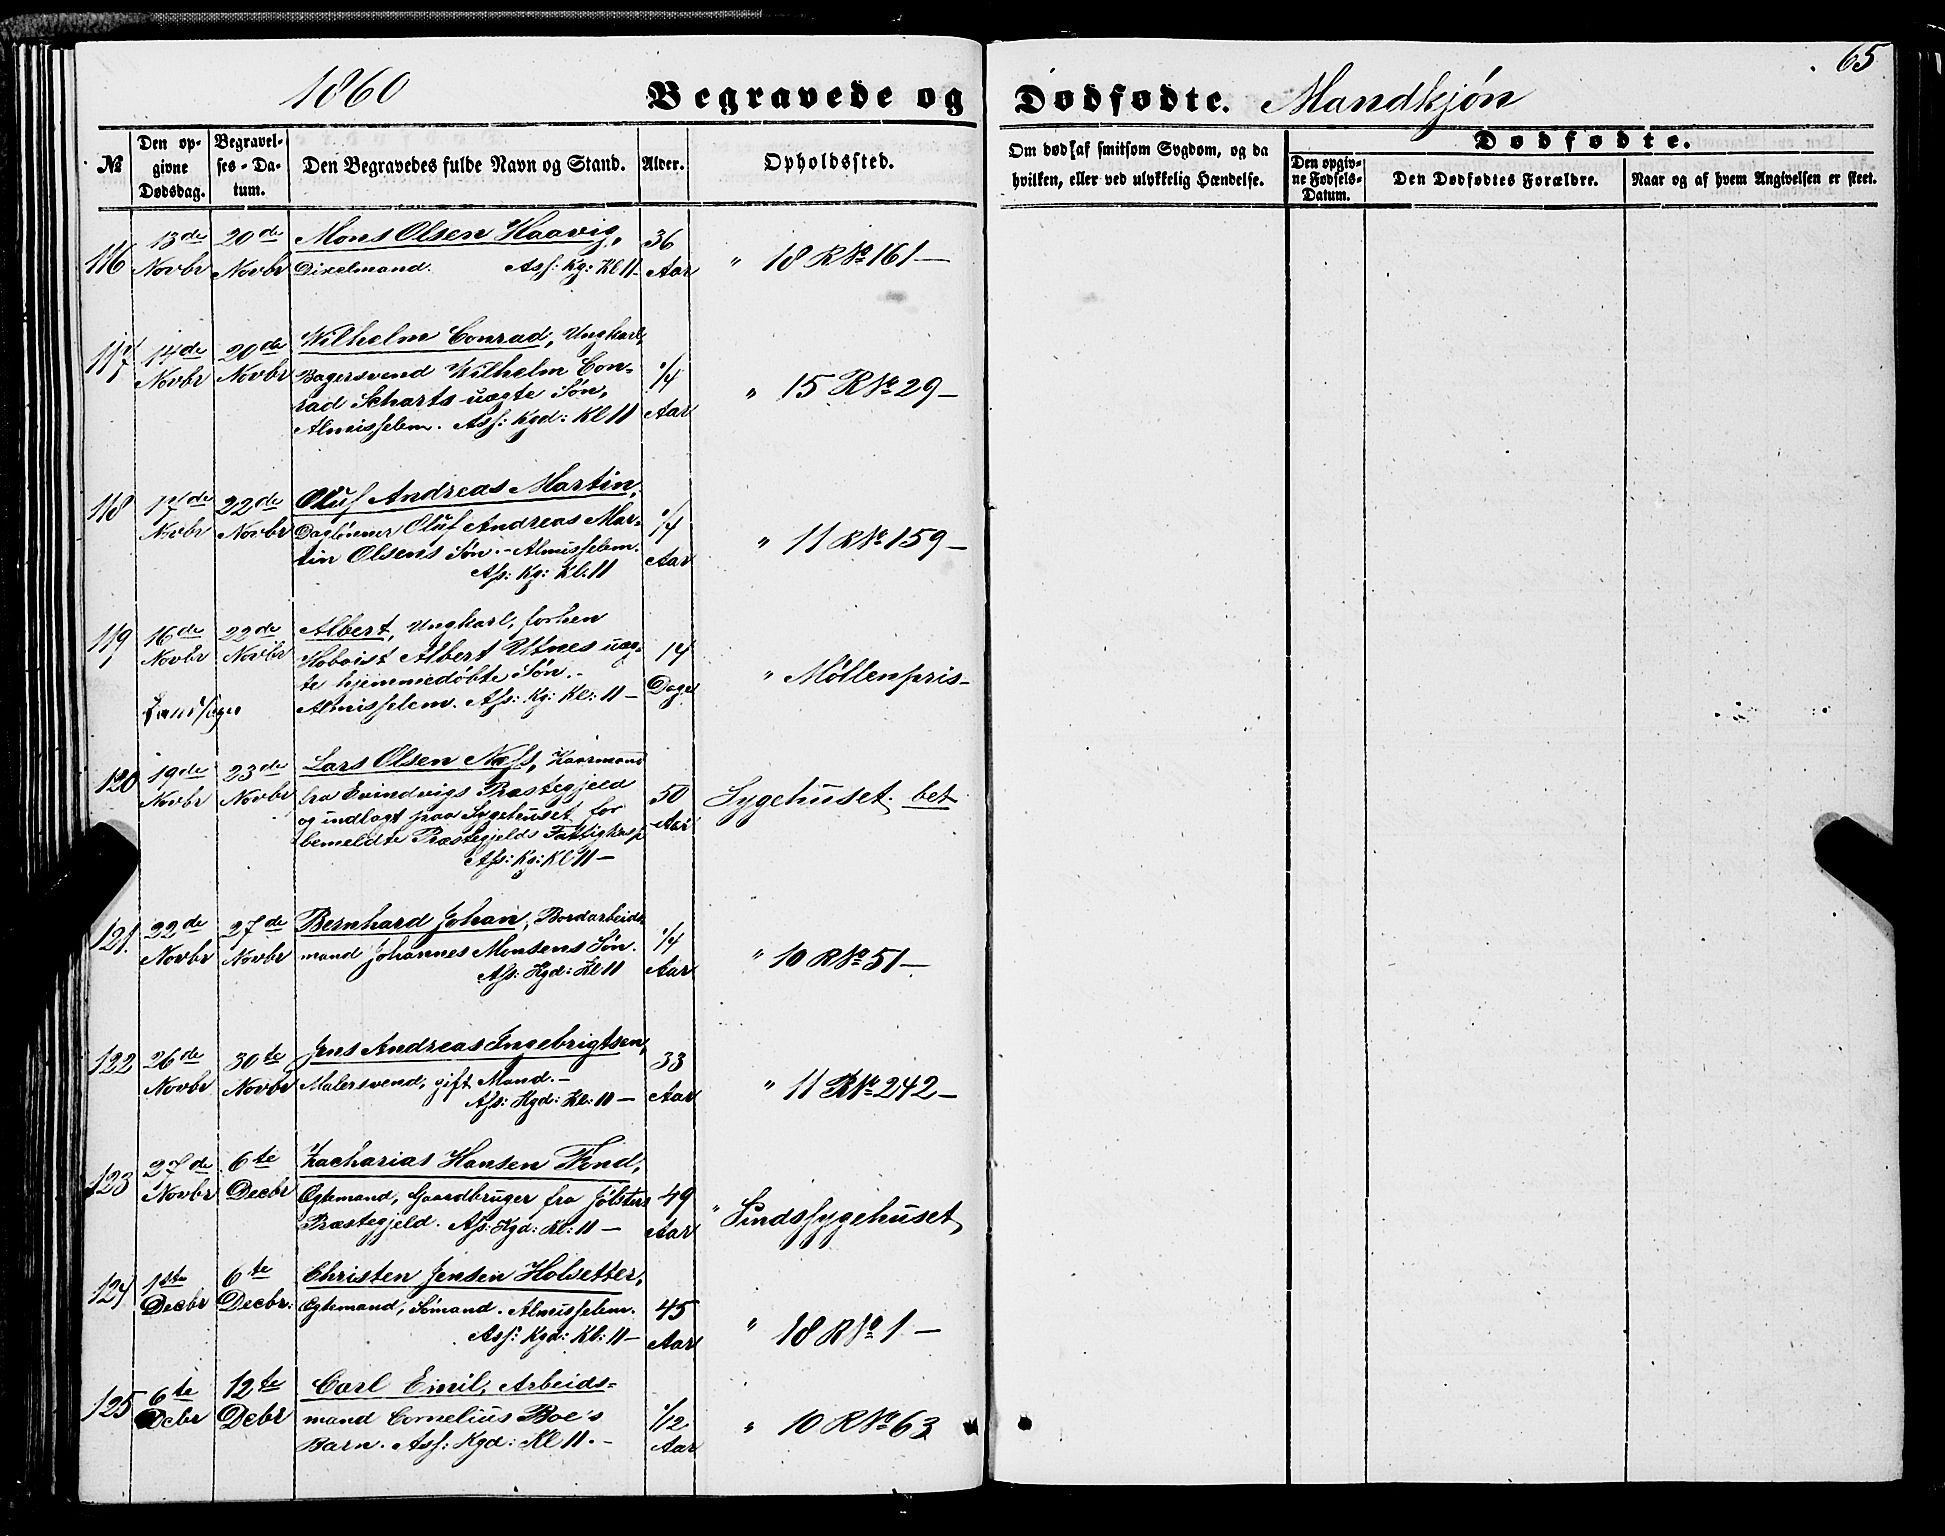 65
1860 Begravede og Dødfødte. Mandkjøn
№ Den opgivne Dødsdag. Begravelses-Datum. Den Begravedes fulde Navn og Stand. Alder. Opholdssted. Om død af smitsom Sygdom, og da hvilken, eller ved ulykkelig Hændelse. Dødfødte. Den opgivne Fødsels-Datum. Den Dødfødtes Forældre. Naar og af hvem Angivelsen er skeet.
116 13de 20de Mons Olsen Haavig, 36
Novbr Novbr Dixelmand. Ass: Kg: Kl 11- Aar " 18 R № 161 —
117 14de 20de Wilhelm Conrad, Ungkarl,
Novbr Novbr Bagersvend Wilhelm Con- 1/4
rad Scharts uægte Søn, " 15 R № 29 —
Almisselem. Ass: Kgd: Kl 11 Aar
118 17de 22de Oluf Andreas Martin,
Novbr Novbr Daglønner Oluf Andreas Mar- 1/4
tin Olsens Søn. - Almisselem. Aar " 11 R № 159 —
Ass: Kg: Kl: 11
119 16de 22de Albert, Ungkarl, forhen
Novbr Novbr Hoboist Albert Utnes uæg- 14
te hjemmedøbte Søn. - Dage " Møllenpris -
Almisselem. Ass: Kg: Kl: 11 —
120 19de 23de Lars Olsen Næss, Kaarmand
Novbr Novbr fra Evindvigs Præstegjeld 50 Sygehuset. bet
og indlagt paa Sygehuset for Aar
bemeldte Præstegjelds Fattigkasse
Ass: Kg: Kl 11 —
121. 22de 27de Bernhard Johan, Bordarbeids-
Novbr Novbr mand Johannes Monsens Søn. 1/4
Ass: Kgd: Kl 11 Aar " 10 R № 51 —
122 26de 30te Jens Andreas Ingebrigtsen, 33
Novbr Novbr Malersvend, gift Mand. —
Ass: Kgd: Kl: 11 — Aar " 11 R № 242 —
123 27de 6te Zacharias Hansen Fend,
Novbr Decbr Egtemand, Gaardbruger fra Jølsters 49
Præstegjeld. Ass: Kgd: Kl: 11 — Aar " Sindssygehuset
124 1ste 6te Christen Jensen Holsetter,
Decbr Decbr: Egtemand, Sømand. Almisselem. 45
Ass: Kgd: Kl: 11 — Aar " 18 R № 1 —
125 6te 12te Carl Emil, Arbeids-
Debr Debr mand Cornelius Boe's 1/12
Barn. Ass: Kgd: Kl 11. — Aar " 10 R № 63